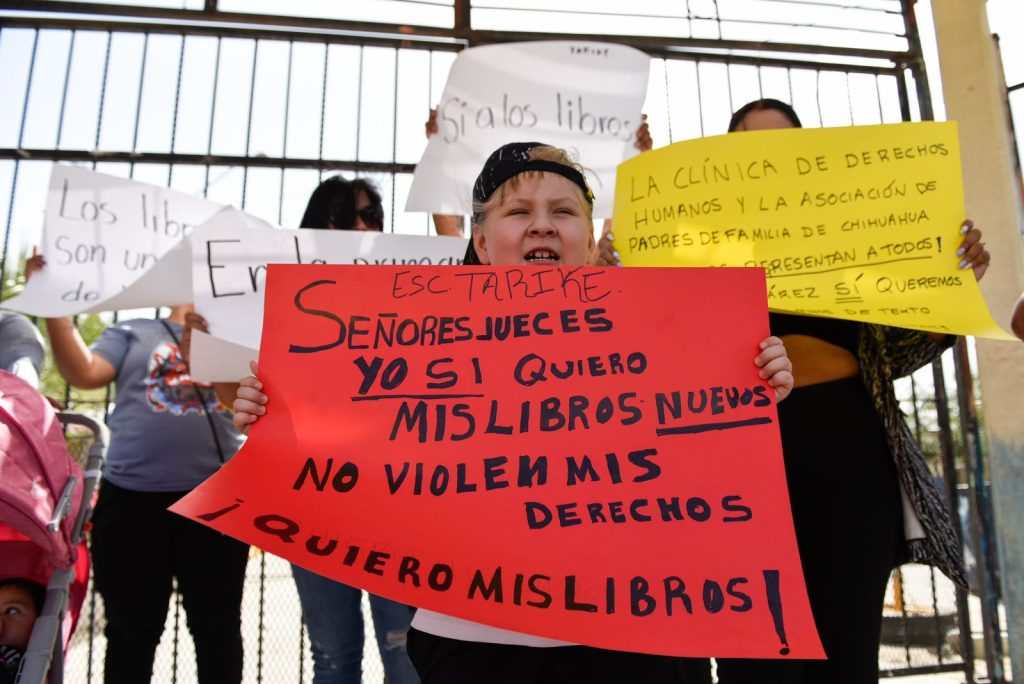 TARIKE.
Si a los libros
Los libr
Son un
de
En la primar
LA CLÍNICA DE DERECHOS
HUMANOS Y LA ASOCIACIÓN DE
PADRES DE FAMILIA DE CHIHUAHUA
REPRESENTAN A TODOS!
ÁREZ SÍ QUEREMOS
DE TEXTO
ESC. TARIKE.
SEÑORES JUECES
YO SI QUIERO
MIS LIBROS NUEVOS
NO VIOLEN MIS
DERECHOS
¡QUIERO MIS LIBROS!